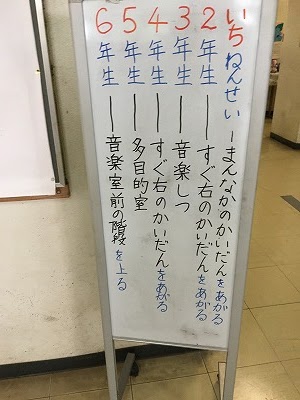 いちねんせい ーまんなかのかいだんをあがる
2年生 ── すぐ右のかいだんをあがる
3年生 ── 音楽しつ
4年生 ── すぐ右のかいだんをあがる
5年生 ── 多目的室
6年生 ── 音楽室前の階段を上る